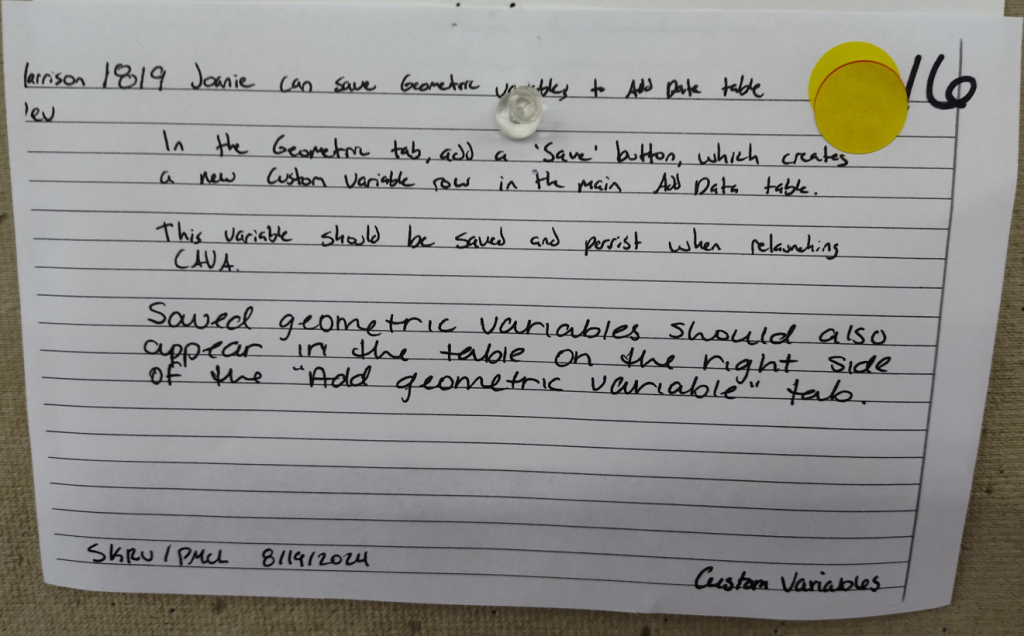 larrison 1819 Joanie can save Geometric variables to Add Data table 16
'ev
In the Geometric tab, add a 'Save' button, which creates
a new Custom Variable row in the main Add Data table.
This variable should be saved and persist when relaunching
CAVA.
Saved geometric variables should also
appear in the table on the right side
of the "Add geometric variable" tab.
SKRU / PMCL 8/19/2024
Custom Variables